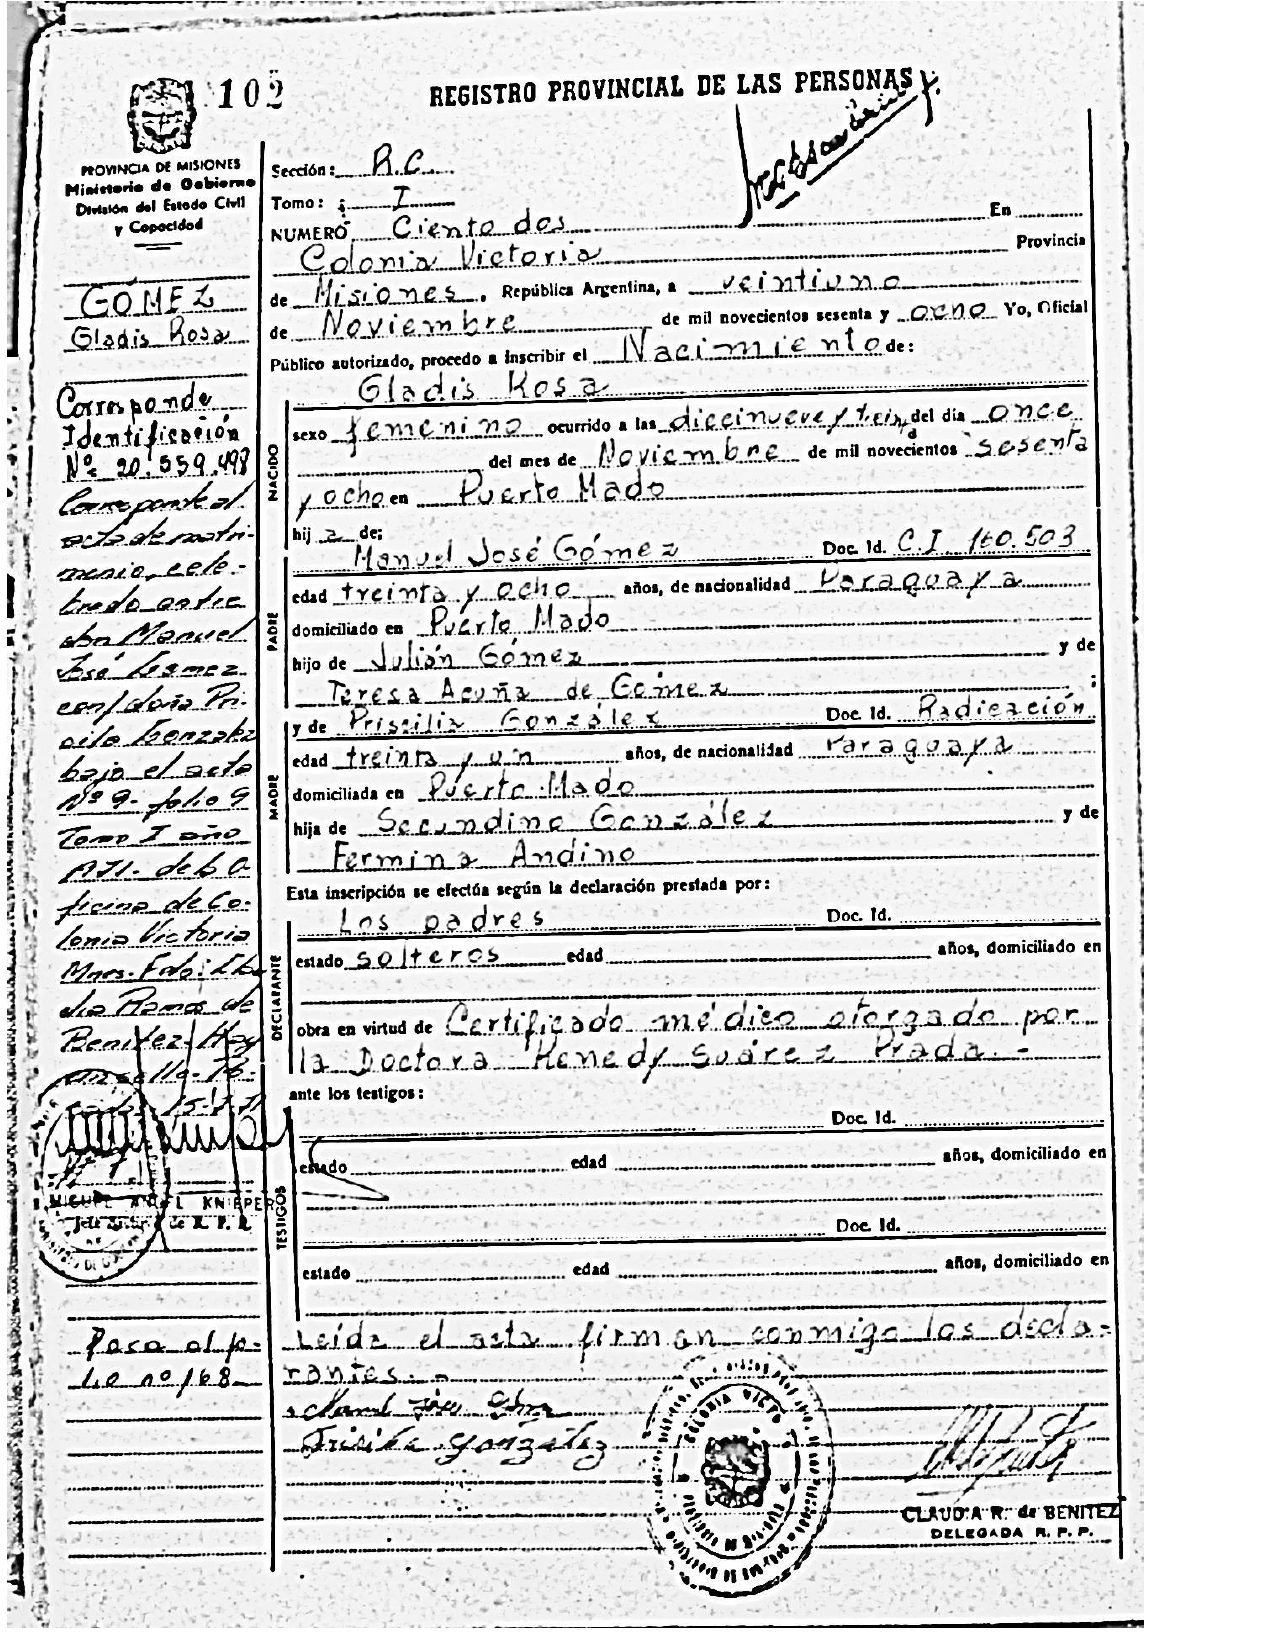 102
REGISTRO PROVINCIAL DE LAS PERSONAS
PROVINCIA DE MISIONES
Ministerio de Gobierno
División del Estado Civil
y Capacidad
GÓMEZ
Gladis Rosa
Corresponde
Identificación
Nº 20.559.498
Corresponde al
acta de matri-
monio, cele-
brado entre
don Manuel
José Gomez
con/doña Pri-
González
bajo el acta
Nº 9- folio 9
Tomo I año
de la O-
ficina de Co-
lonia Victoria
Mnes. Fdo:
Ramos de
Benitez- Hay
MIGUEL ANGEL KNIEPER
de R. P. P.
Pasa al fo-
lio nº 168
Sección: R.C.
Tomo: I
NUMERO Ciento dos En
Colonia Victoria Provincia
de Misiones, República Argentina, a veintiuno
de Noviembre de mil novecientos sesenta y ocho Yo, Oficial
Público autorizado, procedo a inscribir el Nacimiento de:
Gladis Rosa
NACIDO
sexo femenino ocurrido a las diecinueve y del día once
del mes de Noviembre de mil novecientos sesenta
y ocho en Puerto Mado
hija de:
Manuel José Gómez Doc. Id. C.I 160.503
PADRE
edad treinta y ocho años, de nacionalidad Paraguaya
domiciliado en Puerto Mado
hijo de Julián Gómez y de
Teresa Acuña de Gómez ;
y de Priscilia González Doc. Id. Radicación
MADRE
edad treinta y un años, de nacionalidad Paraguaya
domiciliada en Puerto Mado
hija de Secundino González y de
Fermina Andino
Esta inscripción se efectúa según la declaración prestada por:
Los padres Doc. Id.
DECLARANTE
estado solteros edad años, domiciliado en
obra en virtud de Certificado médico otorgado por
la Doctora Kenedy Suárez Prada.-
ante los testigos:
Doc. Id.
TESTIGOS
estado edad años, domiciliado en
Doc. Id.
estado edad años, domiciliado en
Leída el acta firman conmigo los decla-
rantes.-
González
COLONIA
CLAUDIA R. de BENITEZ
DELEGADA R. P. P.